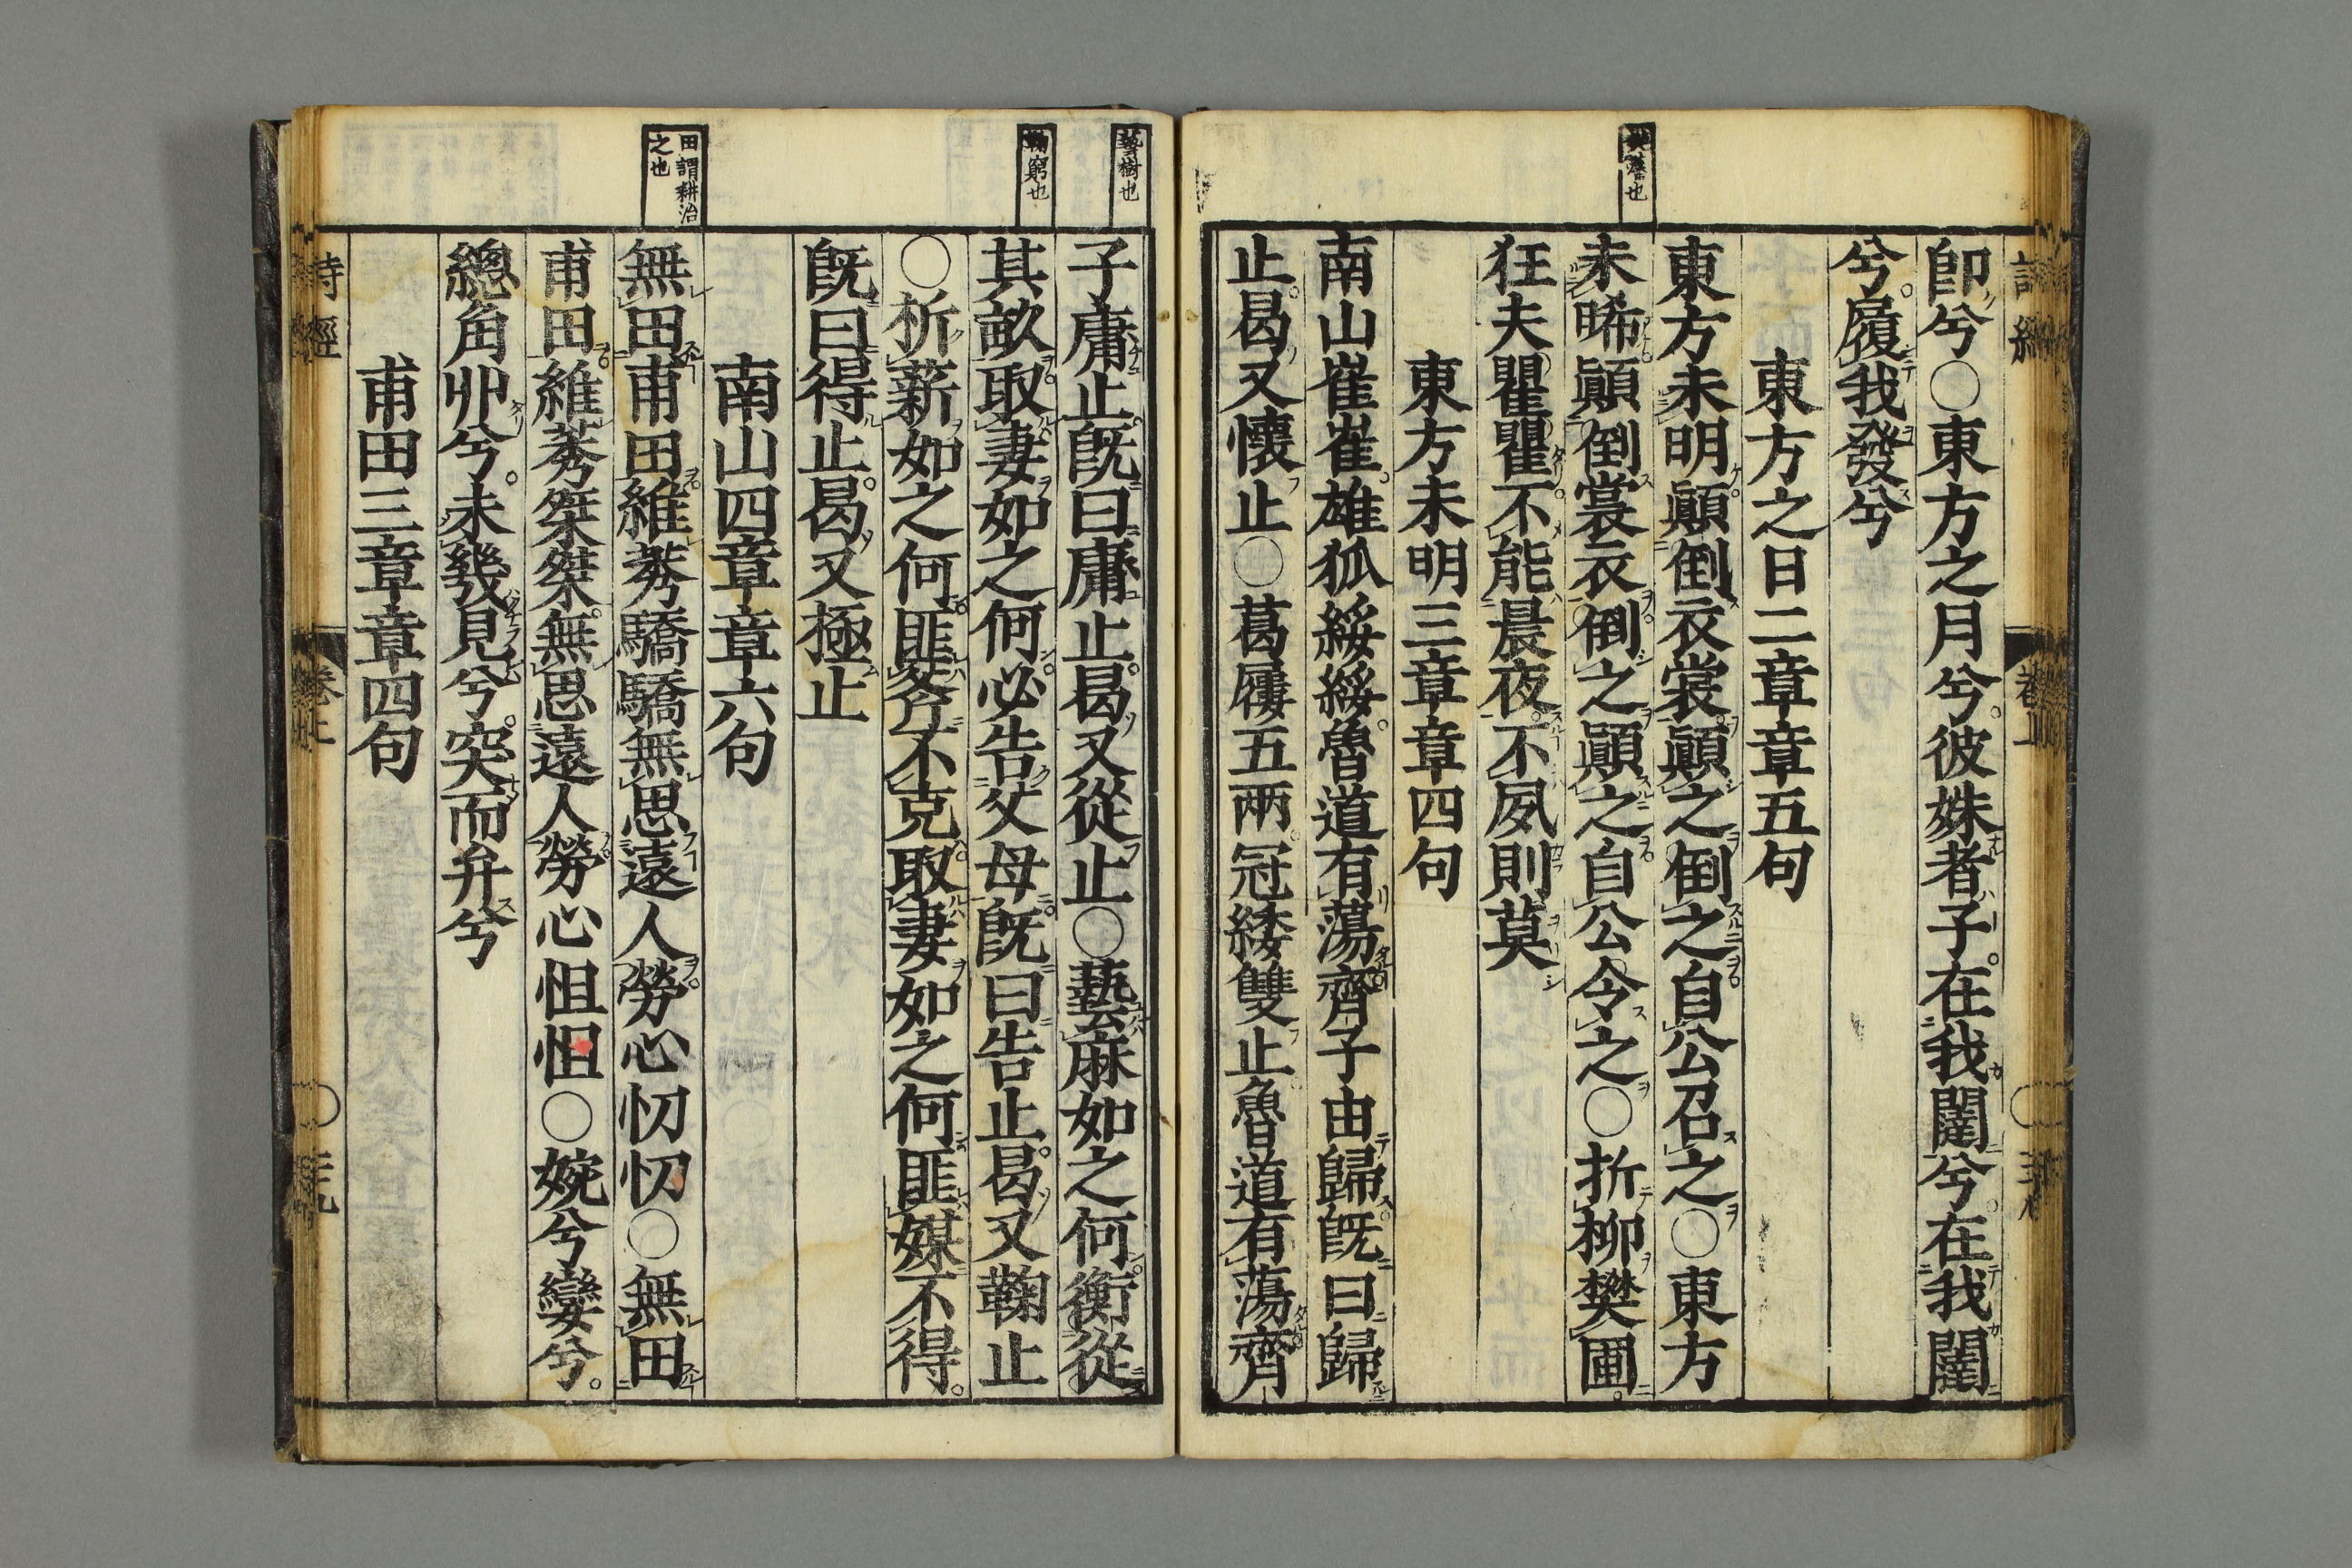 卽兮○東方之月兮彼姝者子在我闥兮在我闥
兮履我發兮
東方之日二章章五句
東方未明顚倒衣裳顚之倒之自公召之○東方
未晞顚倒裳衣倒之顚之自公令之○折柳樊圃
狂夫瞿瞿不能晨夜不夙則莫
東方未明三章章四句
南山崔崔雄狐綏綏魯道有蕩齊子由歸旣曰歸
止曷又懷止○葛屨五兩冠緌雙止魯道有蕩齊
子庸止旣曰庸止曷又從止○藝麻如之何衡從
其畝取妻如之何必告父母旣曰告止曷又鞠止
○析薪如之何匪斧不克取妻如之何匪媒不得
旣曰得止曷又極止
南山四章章六句
無田甫田維莠驕驕無思遠人勞心忉忉○無田
甫田維莠桀桀無思遠人勞心怛怛○婉兮孌兮
總角丱兮未幾見兮突而弁兮
甫田三章章四句
藝樹也
鞠窮也
田謂耕治
之也
詩經
卷上